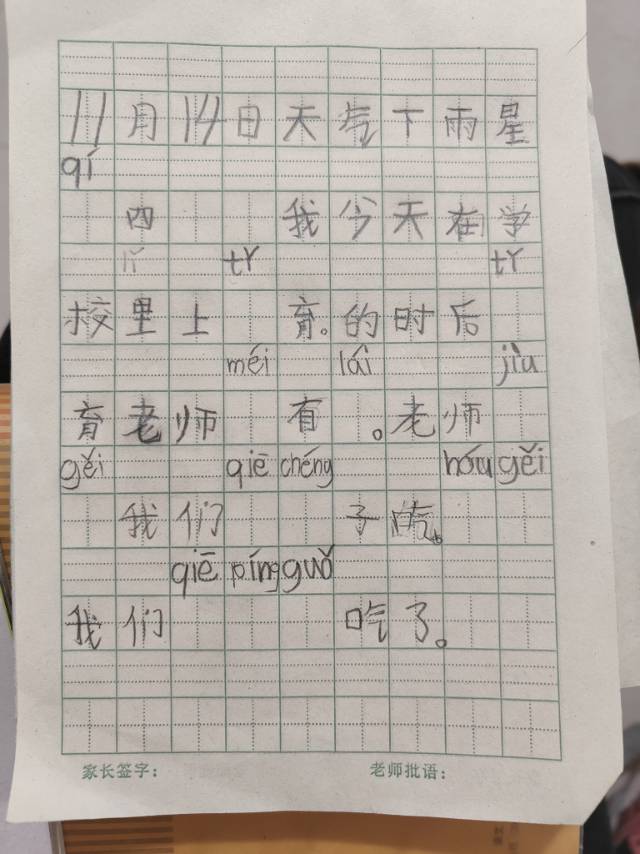 11月14日天气下雨星
qí
四 我今天在学
lǐ tǐ tǐ
校里上 育。的时后
méi lái jiù
育老师 有 。老师
gěi qiē chéng hóu gěi
我们 子吃。
qiē píng guǒ
我们 吃了。
家长签字: 老师批语: